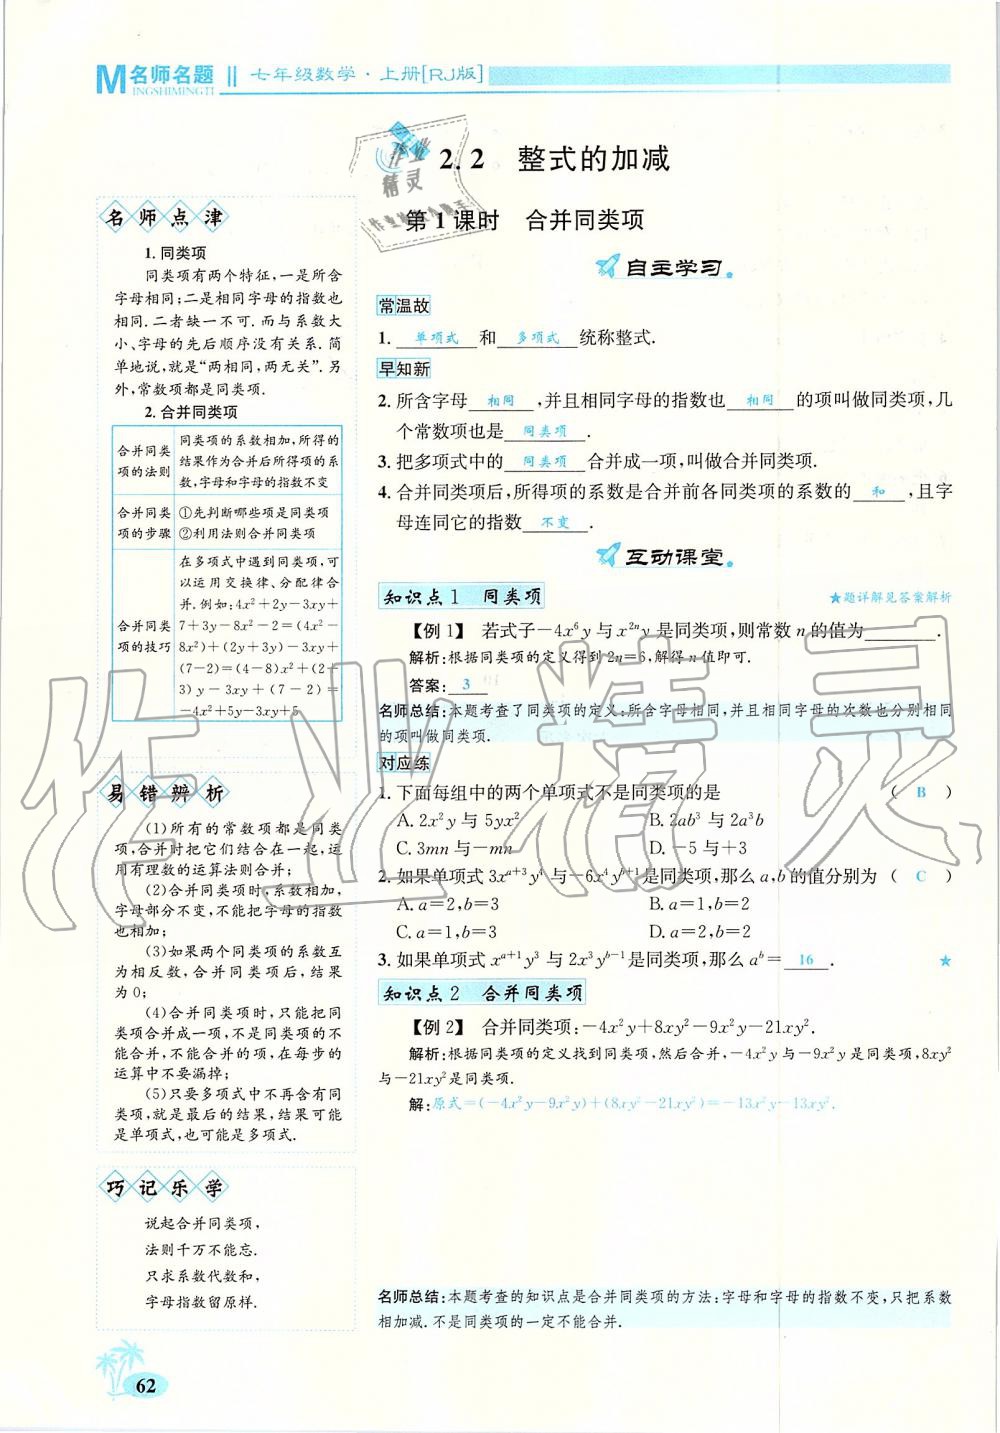 M名师名题 ‖ 七年级数学·上册[RJ版]
INGSHIMINGTI
2.2 整式的加减
第1课时 合并同类项
名师点津
1. 同类项
同类项有两个特征,一是所含
字母相同;二是相同字母的指数也
相同.二者缺一不可.而与系数大
小、字母的先后顺序没有关系.简
单地说,就是“两相同,两无关”.另
外,常数项都是同类项.
2. 合并同类项
合并同类项的法则 同类项的系数相加,所得的
结果作为合并后所得项的系
数,字母和字母的指数不变
合并同类项的步骤 ①先判断哪些项是同类项
②利用法则合并同类项
合并同类项的技巧 在多项式中遇到同类项,可
以运用交换律、分配律合
并.例如:4x²+2y-3xy+
7+3y-8x²-2=(4x²-
8x²)+(2y+3y)-3xy+
(7-2)=(4-8)x²+(2+
3)y-3xy+(7-2)=
-4x²+5y-3xy+5
易错辨析
(1)所有的常数项都是同类
项,合并时把它们结合在一起,运
用有理数的运算法则合并;
(2)合并同类项时,系数相加,
字母部分不变,不能把字母的指数
也相加;
(3)如果两个同类项的系数互
为相反数,合并同类项后,结果
为0;
(4)合并同类项时,只能把同
类项合并成一项,不是同类项的不
能合并,不能合并的项,在每步的
运算中不要漏掉;
(5)只要多项式中不再含有同
类项,就是最后的结果,结果可能
是单项式,也可能是多项式.
巧记乐学
说起合并同类项,
法则千万不能忘.
只求系数代数和,
字母指数留原样.
自主学习
常温故
1. 单项式 和 多项式 统称整式.
早知新
2. 所含字母 相同 ,并且相同字母的指数也 相同 的项叫做同类项,几
个常数项也是 同类项 .
3. 把多项式中的 同类项 合并成一项,叫做合并同类项.
4. 合并同类项后,所得项的系数是合并前各同类项的系数的 和 ,且字
母连同它的指数 不变 .
互动课堂
知识点1 同类项 ★题详解见答案解析
【例1】 若式子-4x⁶y与x²ⁿy是同类项,则常数n的值为________.
解析:根据同类项的定义得到2n=6,解得n值即可.
答案: 3
名师总结:本题考查了同类项的定义:所含字母相同,并且相同字母的次数也分别相同
的项叫做同类项.
对应练
1. 下面每组中的两个单项式不是同类项的是 ( B )
A. 2x²y与5yx² B. 2ab³与2a³b
C. 3mn与-mn D. -5与+3
2. 如果单项式3xᵃ⁺³y⁴与-6x⁴yᵇ⁺¹是同类项,那么a,b的值分别为 ( C )
A. a=2,b=3 B. a=1,b=2
C. a=1,b=3 D. a=2,b=2
3. 如果单项式xᵃ⁺¹y³与2x³yᵇ⁻¹是同类项,那么aᵇ= 16 . ★
知识点2 合并同类项
【例2】 合并同类项:-4x²y+8xy²-9x²y-21xy².
解析:根据同类项的定义找到同类项,然后合并,-4x²y与-9x²y是同类项,8xy²
与-21xy²是同类项.
解:原式=(-4x²y-9x²y)+(8xy²-21xy²)=-13x²y-13xy².
名师总结:本题考查的知识点是合并同类项的方法:字母和字母的指数不变,只把系数
相加减.不是同类项的一定不能合并.
62
作业精灵